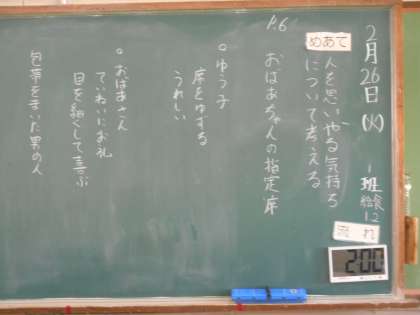 2月26日(火)
1班
給食
12
流れ
2:00
めあて
人を思いやる気持ち
について考える
P.6
おばあちゃんの指定席
○ゆう子
席をゆずる
うれしい
○おばあさん
ていねいにお礼
目を細くして喜ぶ
包帯をまいた男の人